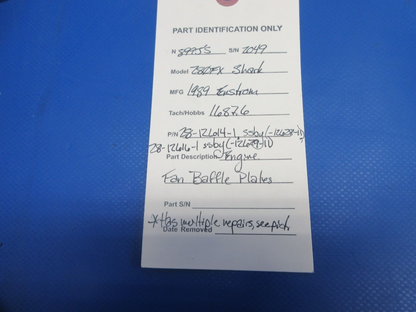 PART IDENTIFICATION ONLY
N 8995S S/N 2049
Model 280FX Shark
MFG 1989 Enstrom
Tach/Hobbs 1687.6
P/N 28-12614-1, ssby(-12628-11)
28-12616-1 ssby(-12629-11)
Part Description Engine
Fan Baffle Plates
Part S/N
*Has multiple repairs, see pich
Date Removed